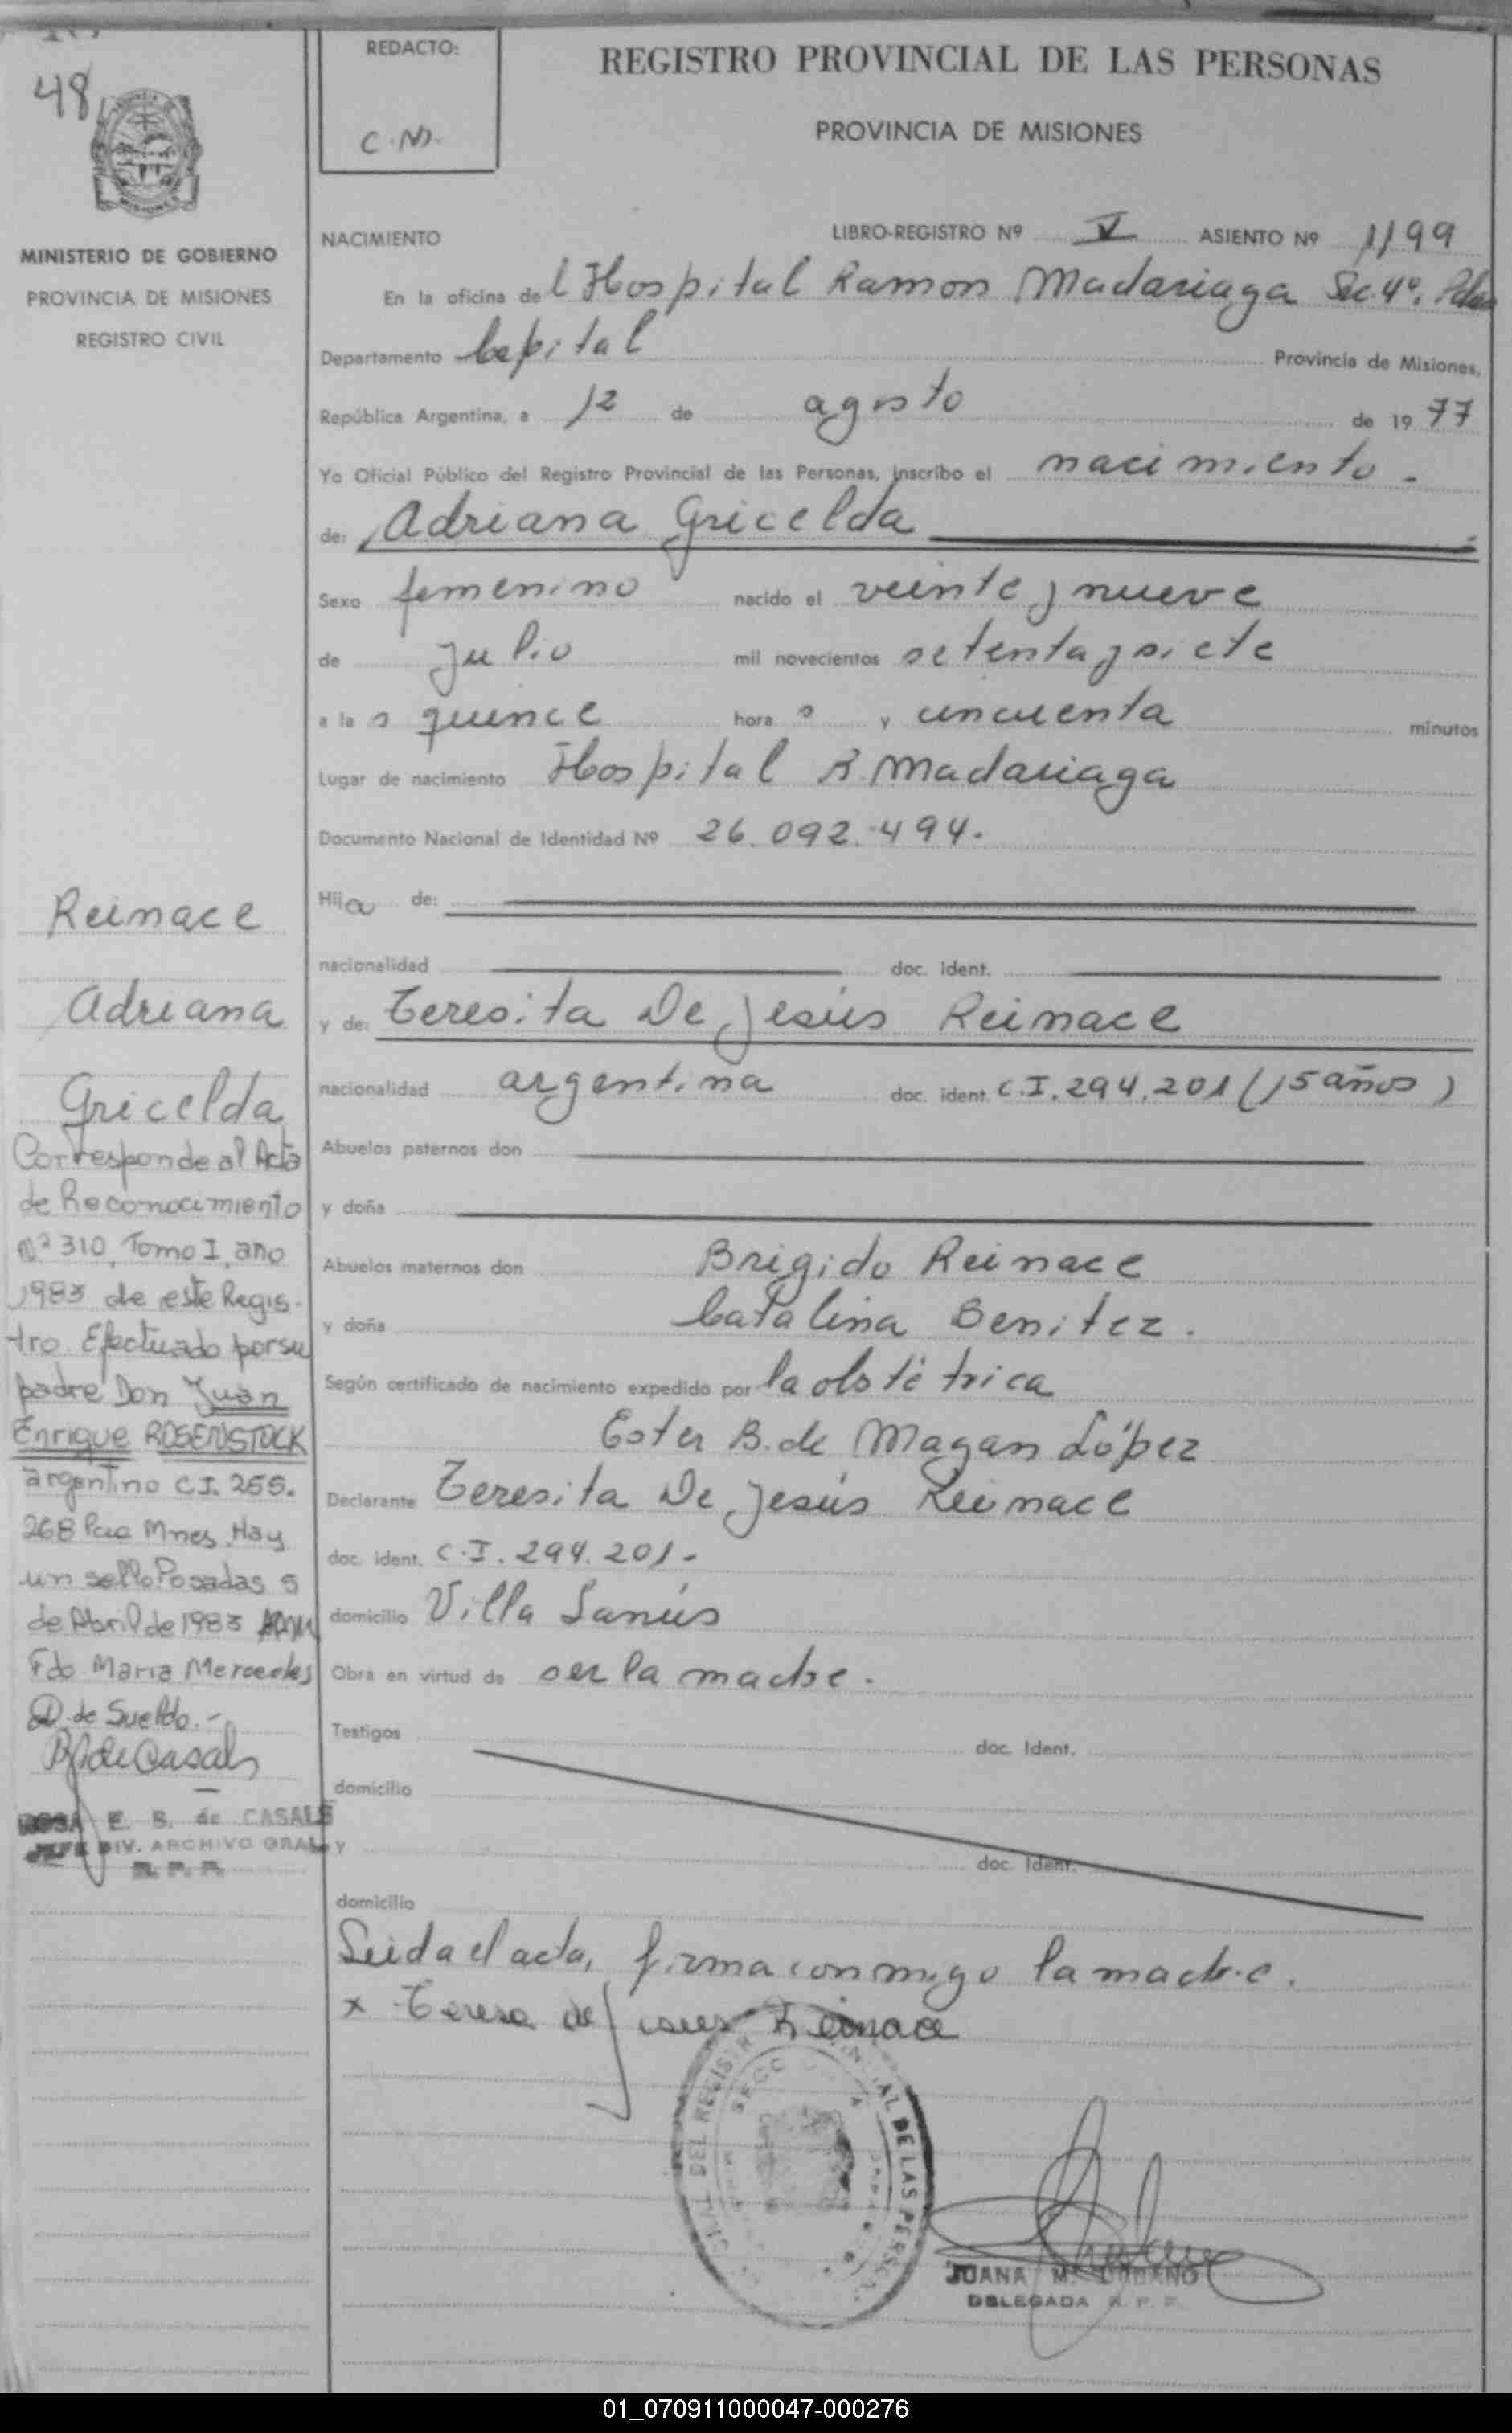 48
MISIONES
MINISTERIO DE GOBIERNO
PROVINCIA DE MISIONES
REGISTRO CIVIL
REDACTO:
C.N.
REGISTRO PROVINCIAL DE LAS PERSONAS
PROVINCIA DE MISIONES
NACIMIENTO LIBRO-REGISTRO Nº V ASIENTO Nº 1199
En la oficina del Hospital Ramon Madariaga Sec. 4º. Pdas
Departamento Capital Provincia de Misiones,
República Argentina, a 12 de agosto de 1977
Yo Oficial Público del Registro Provincial de las Personas, inscribo el nacimiento.
de: Adriana Gricelda
Sexo femenino nacido el veinte y nueve
de julio mil novecientos setenta y siete
a las quince horas y cincuenta minutos
Lugar de nacimiento Hospital R. Madariaga
Documento Nacional de Identidad Nº 26.092.494.
Hija de:
nacionalidad doc. ident.
y de: Teresita De Jesús Reinace
nacionalidad argentina doc. ident. C.I. 294.201 (15 años)
Abuelos paternos don
y doña
Abuelos maternos don Brigido Reinace
y doña Catalina Benitez.
Según certificado de nacimiento expedido por la obstétrica
Ester B. de Magan López
Declarante Teresita De Jesús Reinace
doc. ident. C.I. 294.201.-
domicilio Villa Lanús
Obra en virtud de ser la madre.
Testigos doc. Ident.
domicilio
y doc. Ident.
domicilio
Leida el acta, firma conmigo la madre.
x Teresa de Jesus Reinace
JUANA M. LUBANO
DELEGADA R. P. P.
Reinace
Adriana
Gricelda
Corresponde al Acta
de Reconocimiento
Nº 310, Tomo I, año
1983 de este Regis-
tro. Efectuado por su
padre Don Juan
Enrique ROSENSTOCK
argentino C.I. 255.
268 Pcia Mnes. Hay
un sello Posadas 5
de Abril de 1983
Fdo Maria Mercedes
D. de Sueldo.-
ROSA E. B. de CASALS
JEFE DIV. ARCHIVO GRAL.
R. P. P.
01_070911000047-000276